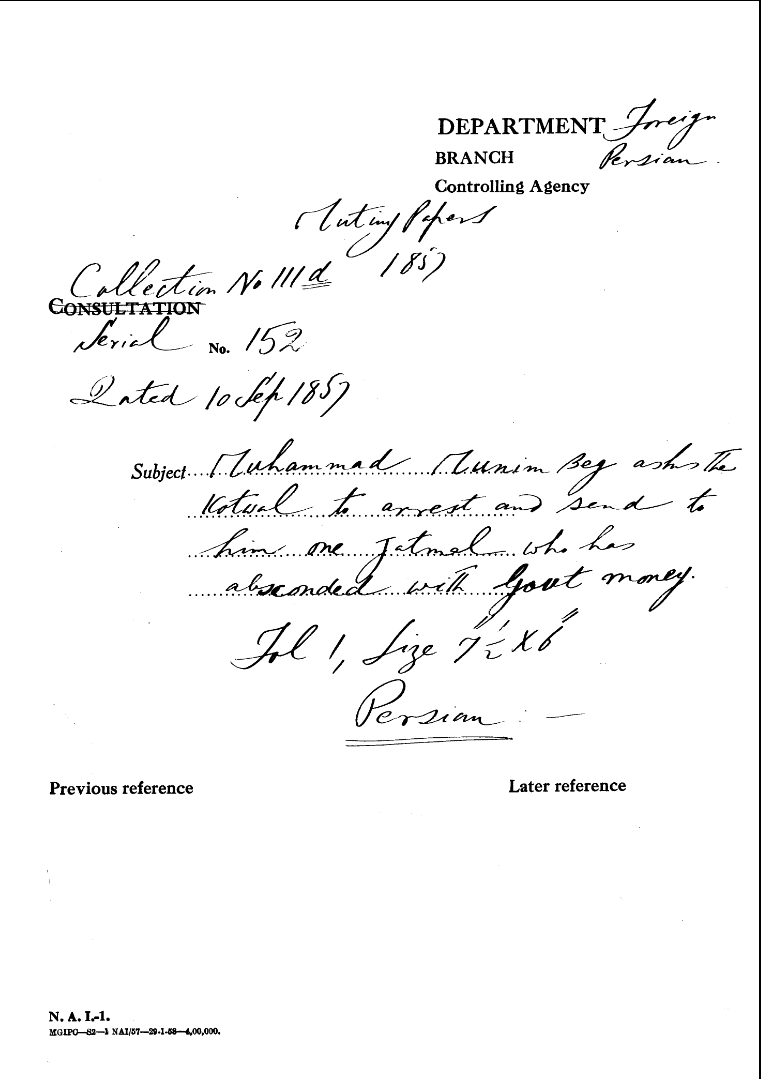 DEPARTMENT Foreign
BRANCH Persian.
Controlling Agency
Mutiny Papers
1857
Collection No 111 d
CONSULTATION
Serial No. 152
Dated 10 Sep 1857
Subject Muhammad Munim Beg asks the
Kotwal to arrest and send to
him one Jatmal who has
absconded with Govt money.
Fol 1, Size 7½" X 6"
Persian : —
Previous reference
Later reference
N. A. I.-1.
MGIPC—S2—1 NAI/57—29-1-58—4,00,000.